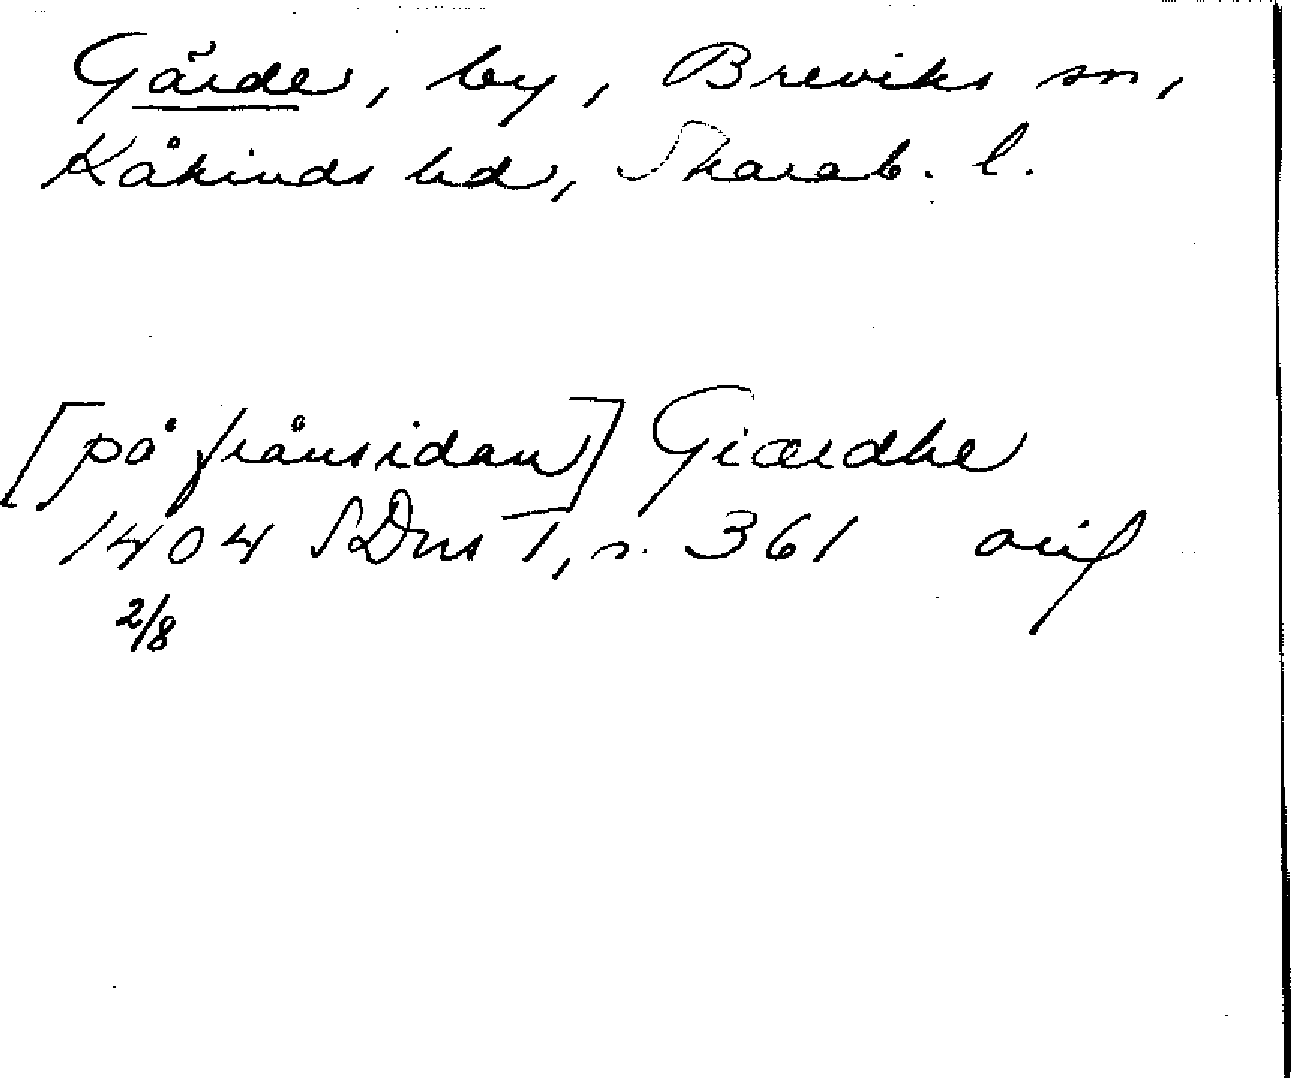 Gärde, by, Breviks sn,
Kåkinds hd, Skarab. l.
[på frånsidan] Giærdhe
1404 SDns 1, s. 361 avif
2/8